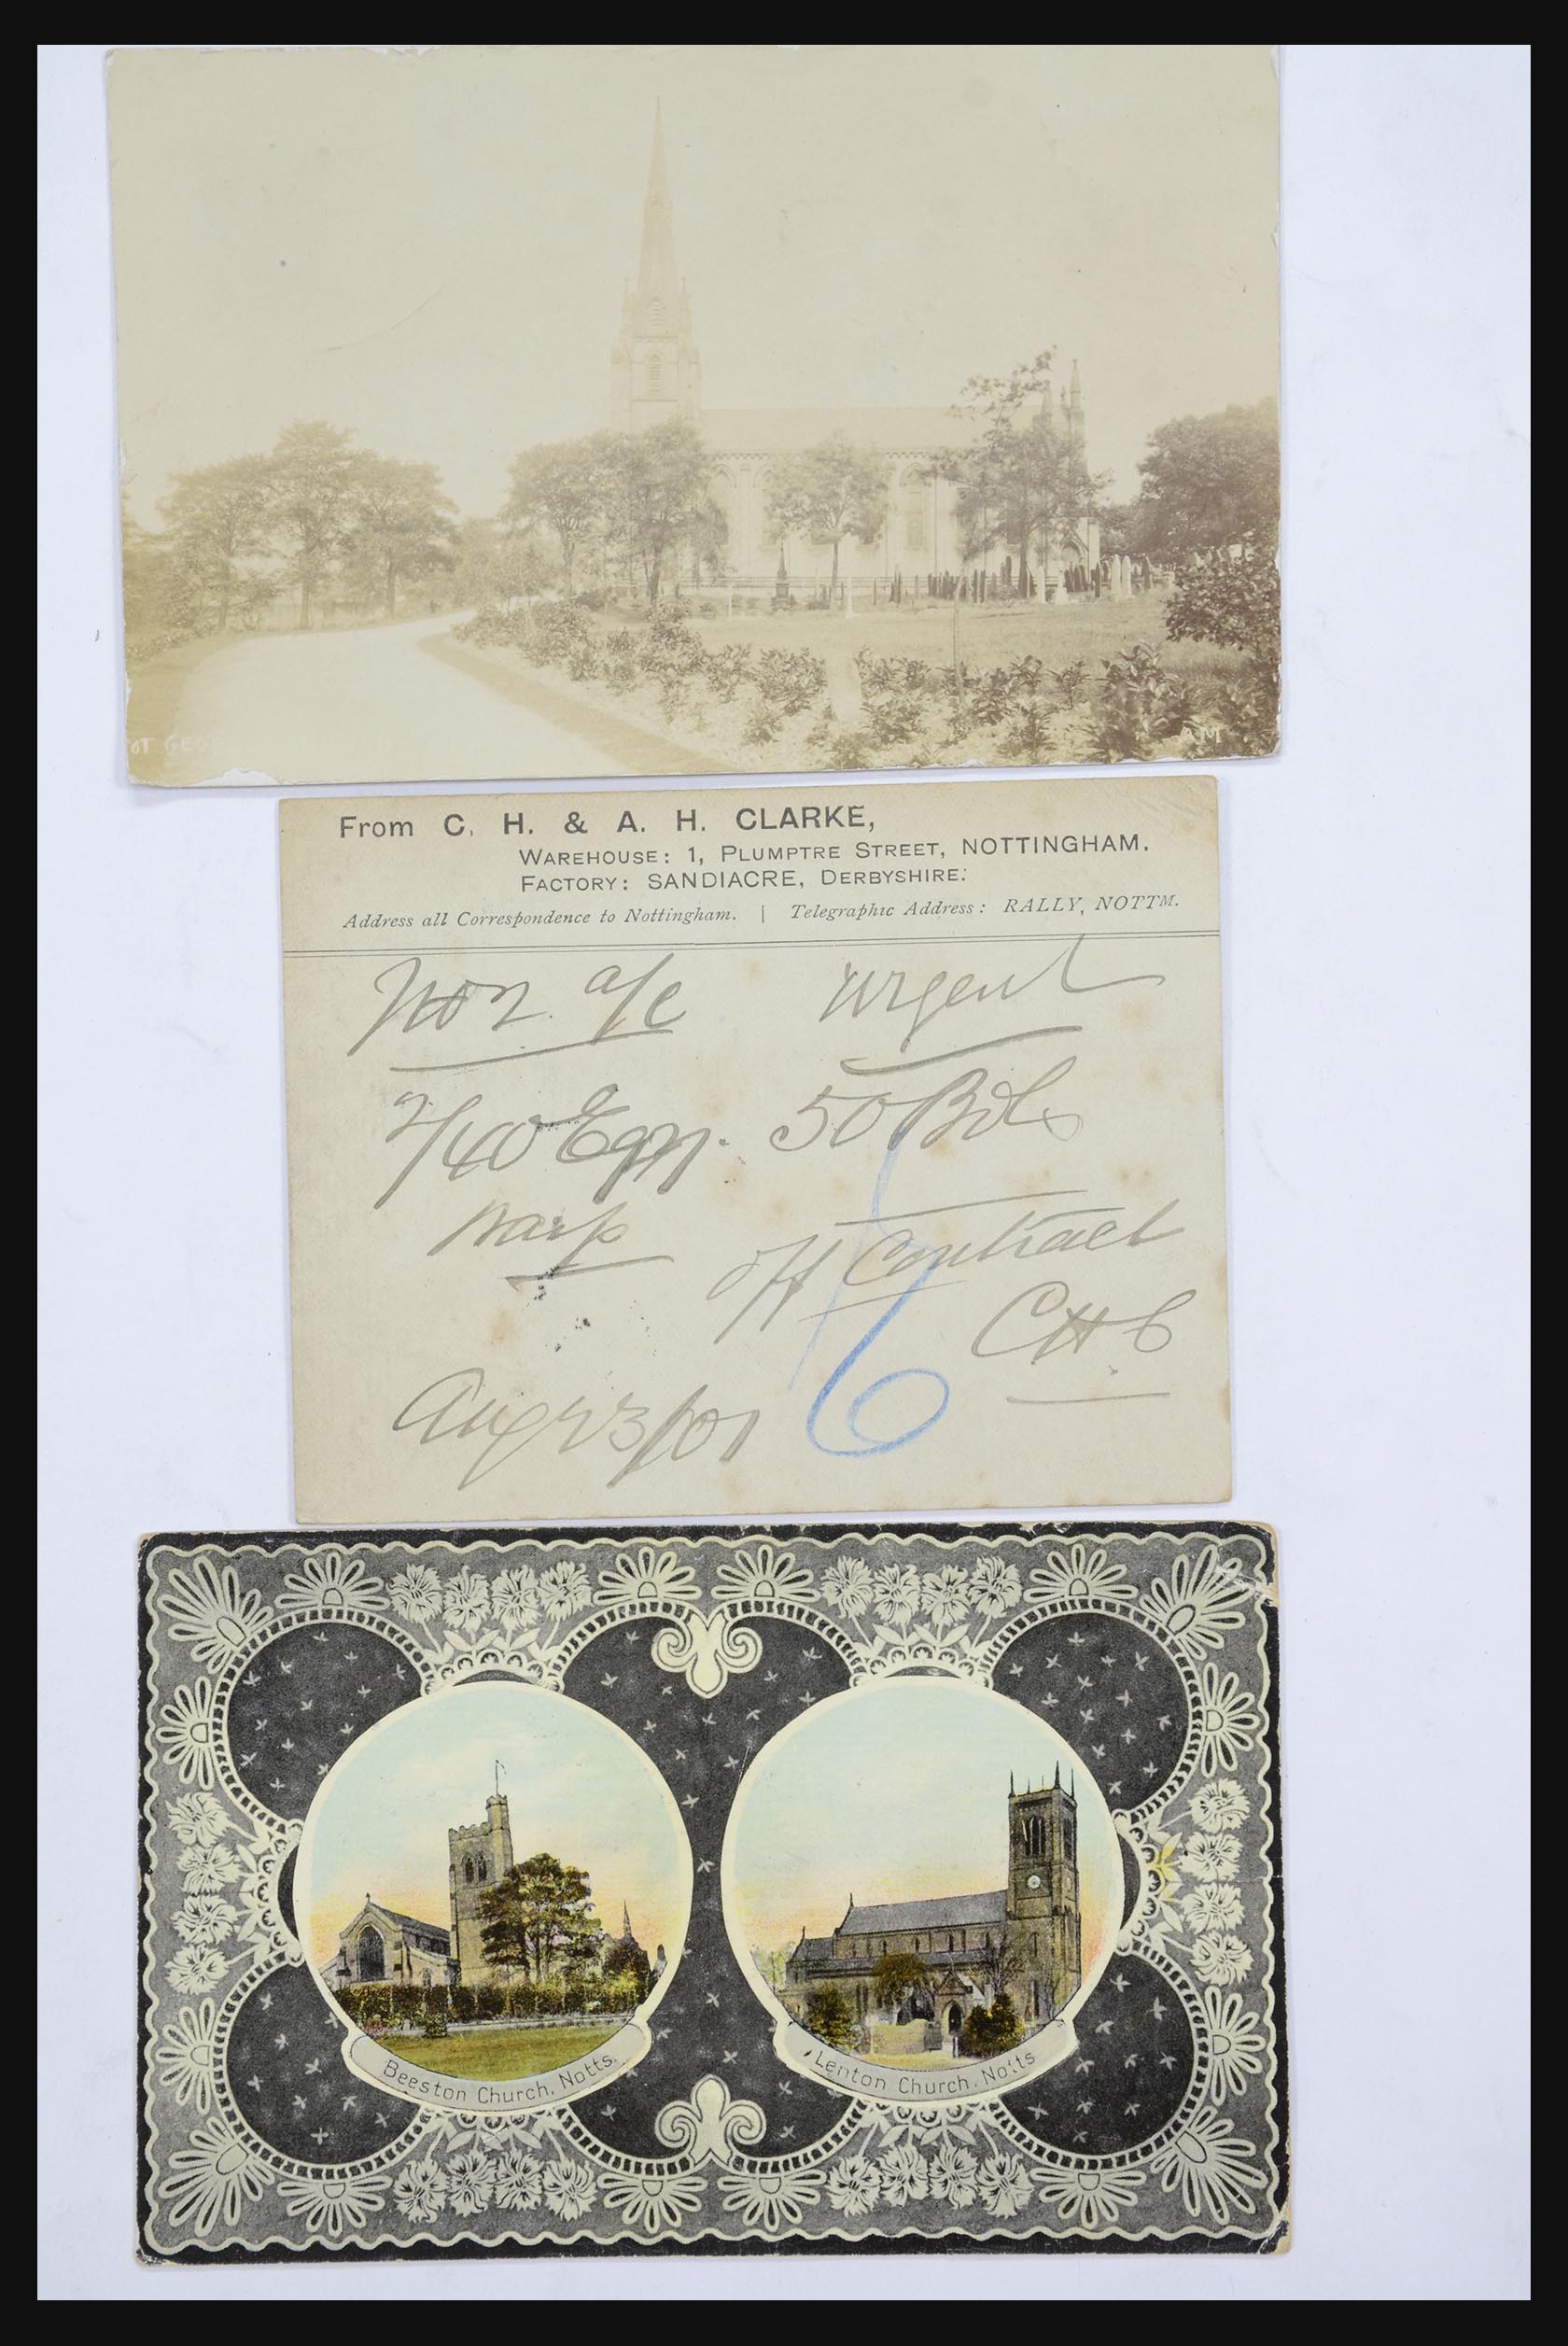 From C. H. & A. H. CLARKE,
WAREHOUSE: 1, PLUMPTRE STREET, NOTTINGHAM.
FACTORY: SANDIACRE, DERBYSHIRE.
Address all Correspondence to Nottingham. | Telegraphic Address: RALLY, NOTTM.
a/c Urgent
2/40 Egyp. 50 Bdls
Warp
off Contract
CHC
Aug 23/01
6
Beeston Church, Notts.
Lenton Church. Notts